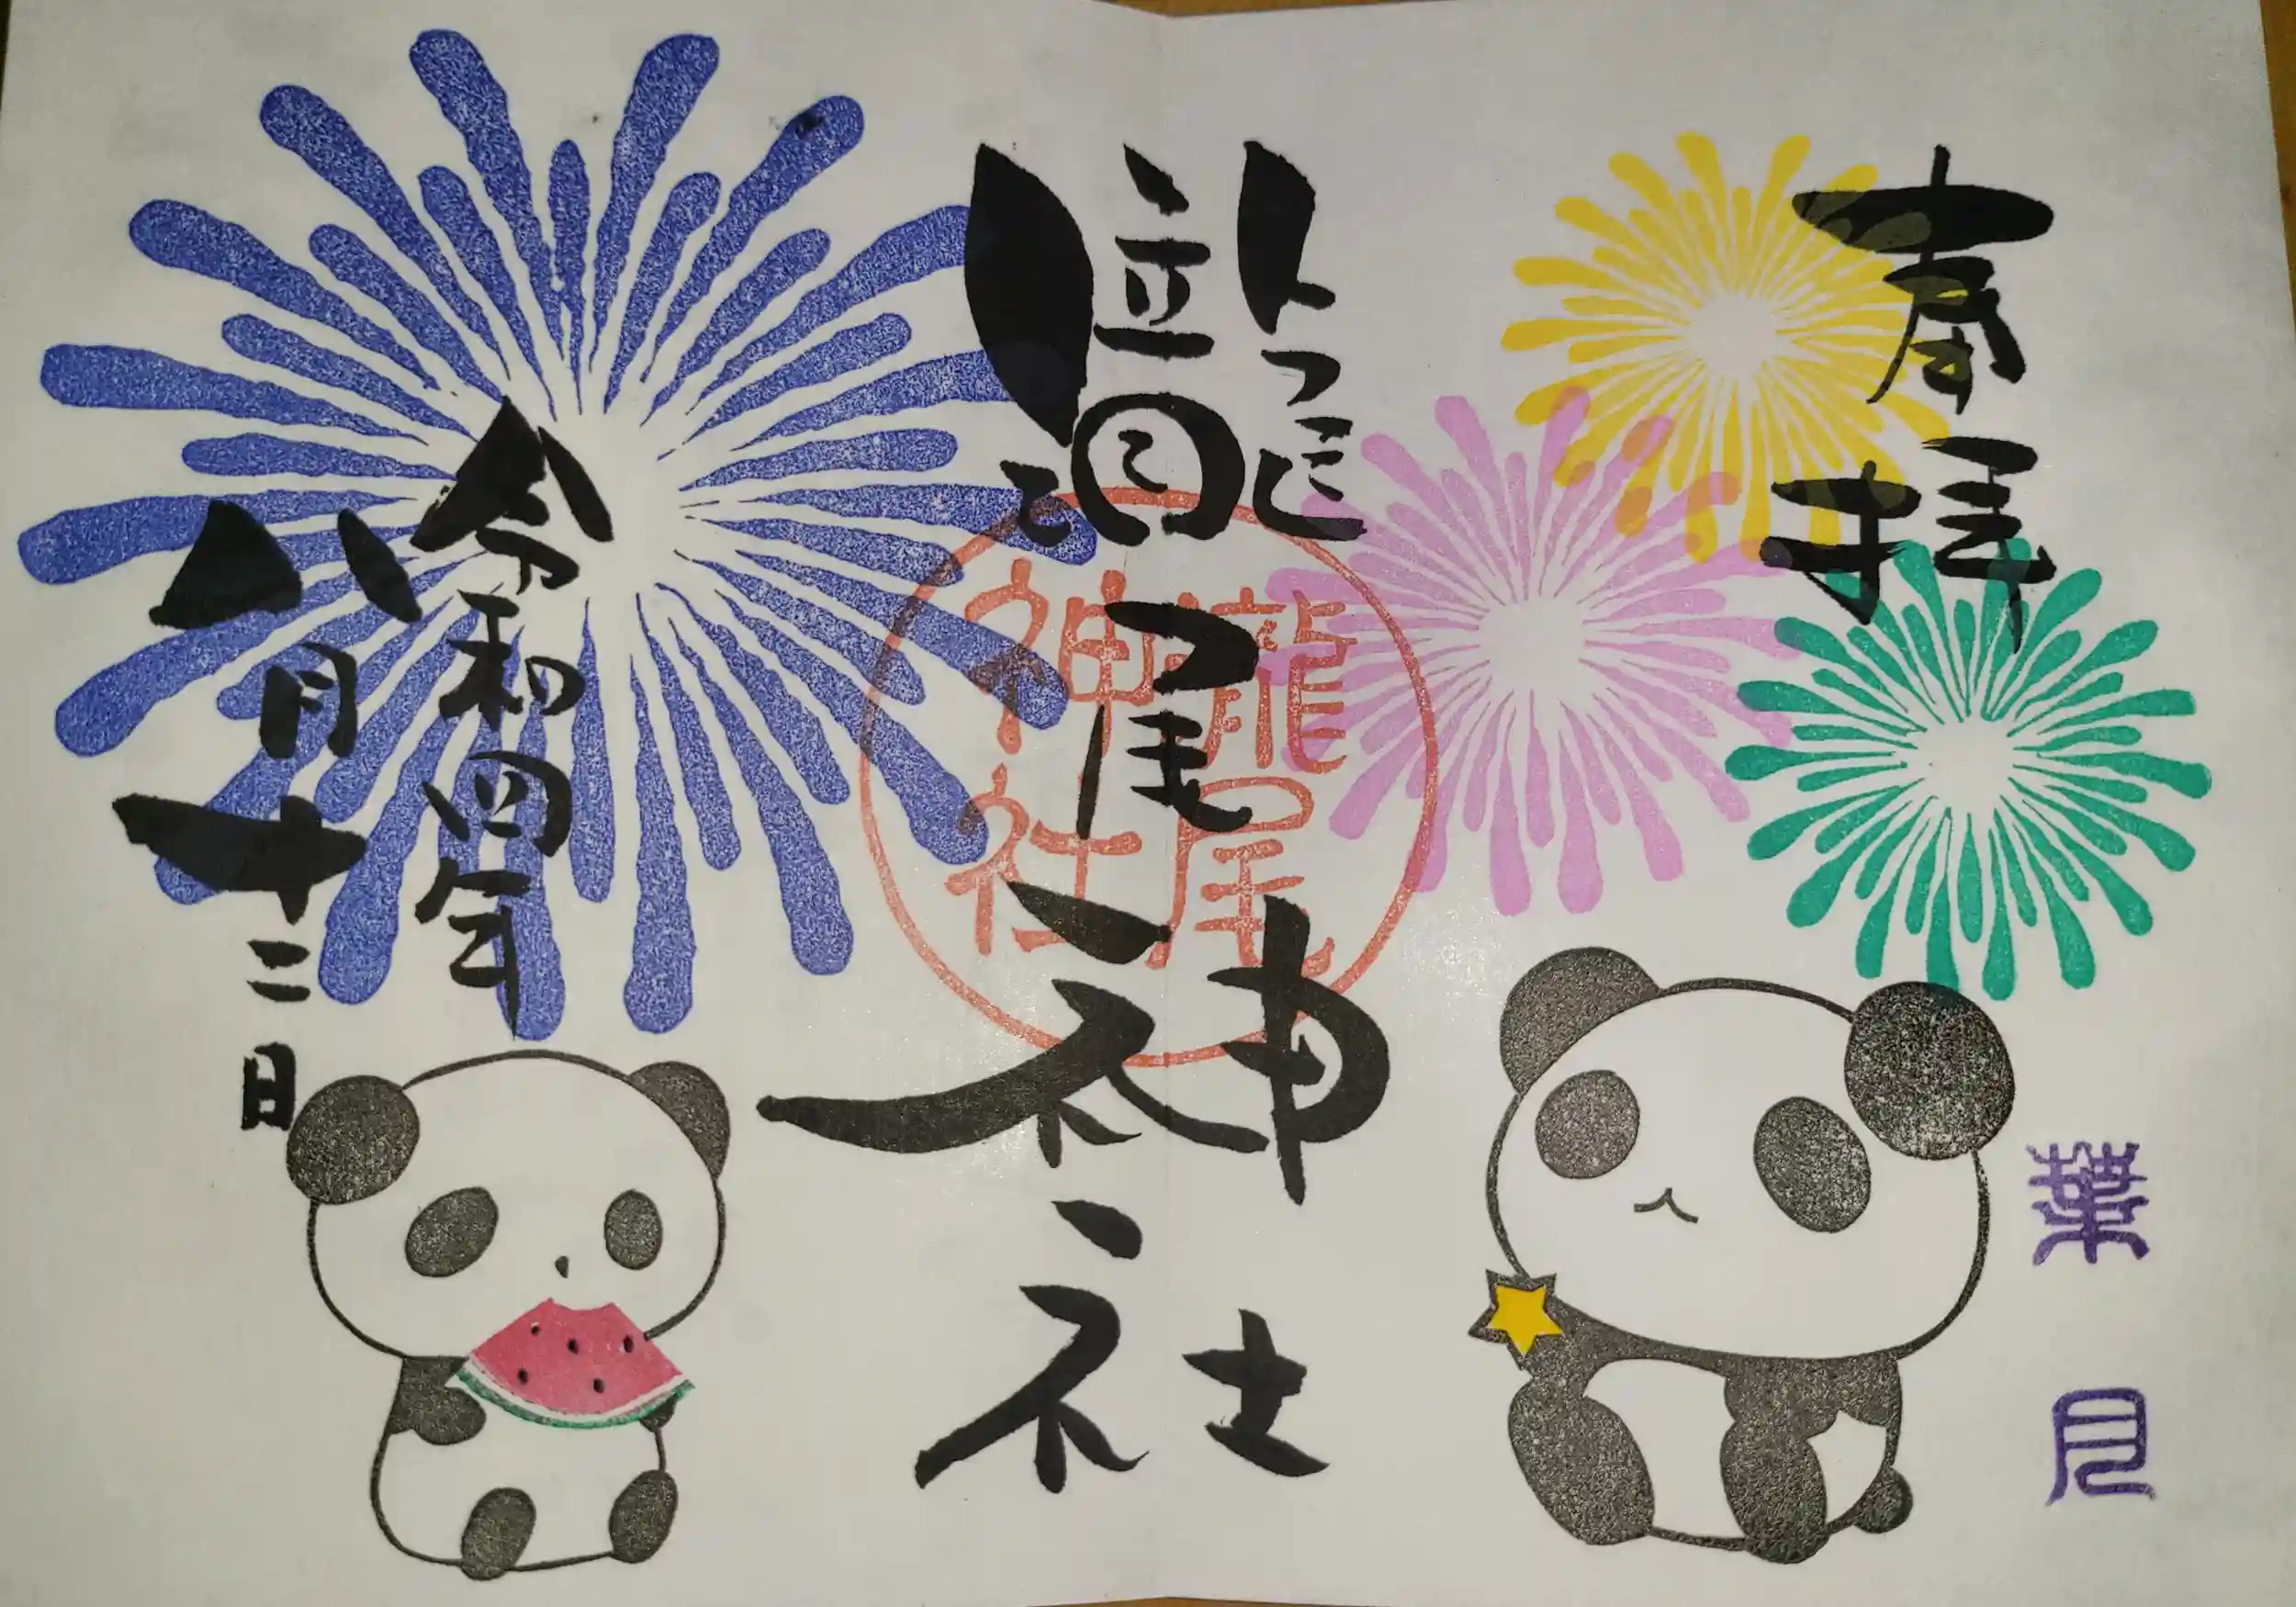 奉拝
葉月
瀧尾神社
瀧尾
神社
令和四年
八月十二日